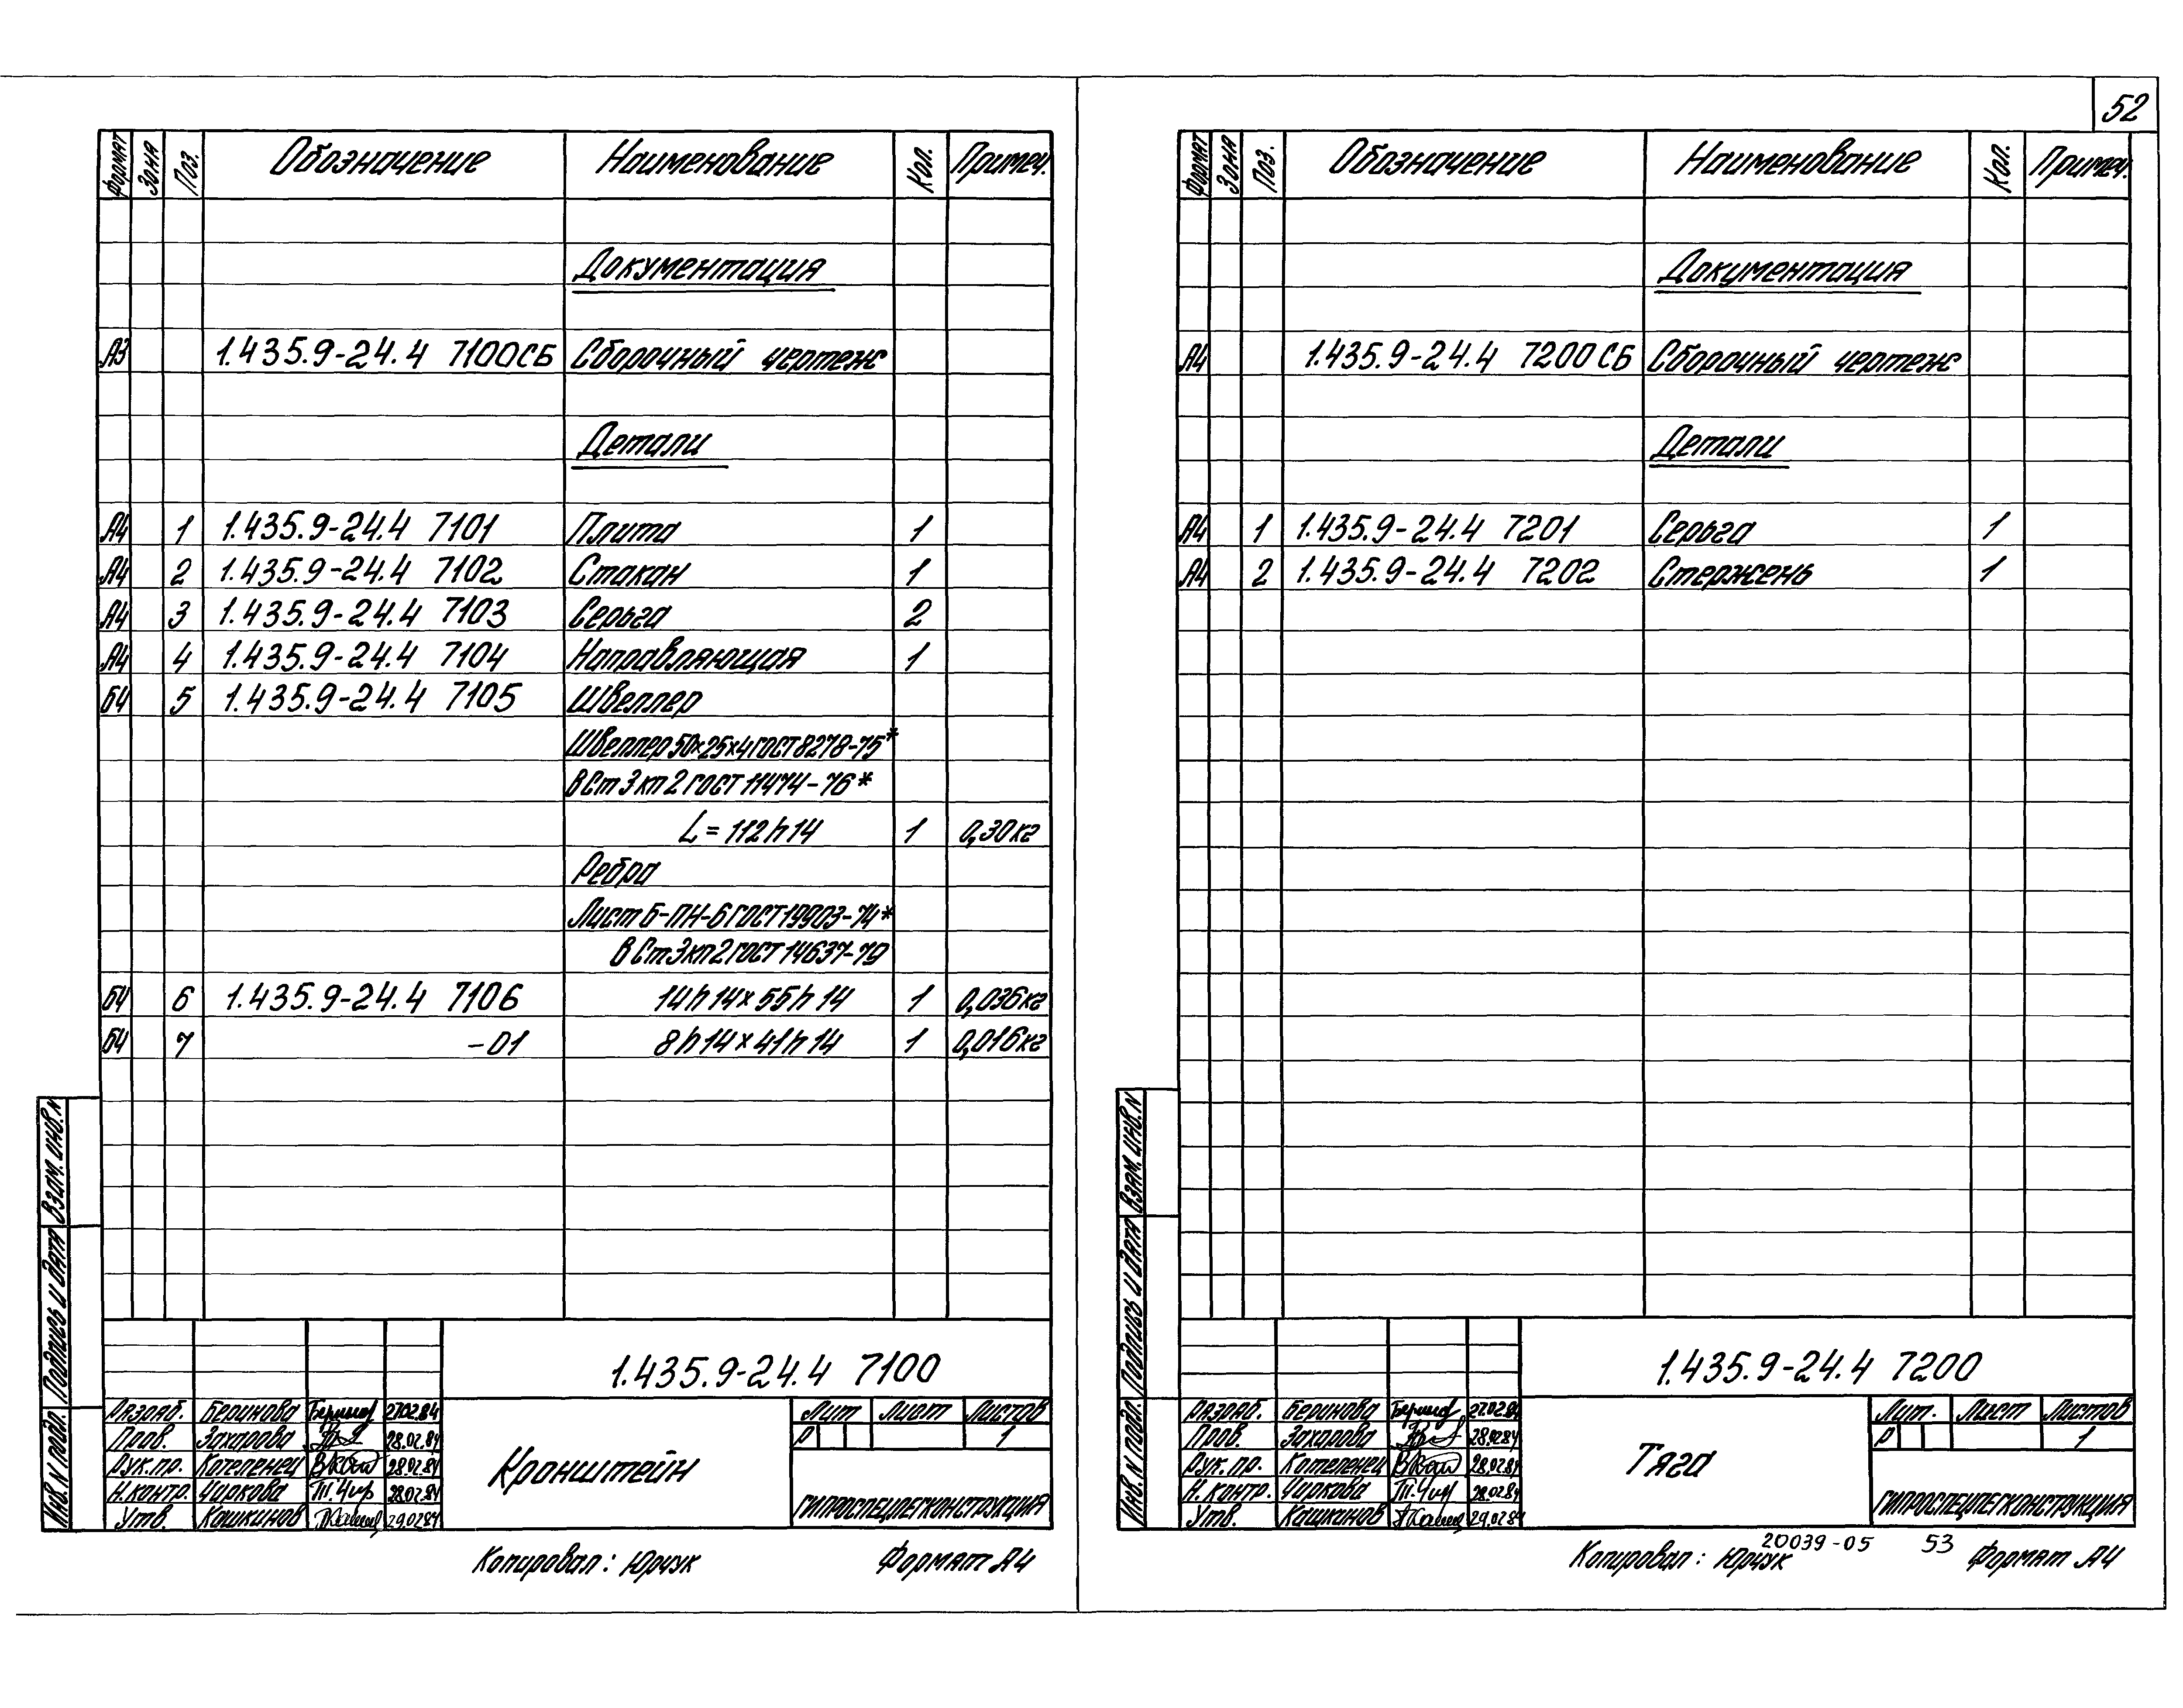 52
Формат Зона Поз. Обозначение Наименование Кол. Примеч.
Документация
А3 1.435.9-24.4 7100СБ Сборочный чертеж
Детали
А4 1 1.435.9-24.4 7101 Плита 1
А4 2 1.435.9-24.4 7102 Стакан 1
А4 3 1.435.9-24.4 7103 Серьга 2
А4 4 1.435.9-24.4 7104 Направляющая 1
БЧ 5 1.435.9-24.4 7105 Швеллер
Швеллер 50×25×4 ГОСТ 8278-75*
ВСт3кп2 ГОСТ 11474-76*
L=112h14 1 0,30кг
Ребра
Лист Б-ПН-6 ГОСТ 19903-74*
ВСт3кп2 ГОСТ 14637-79
БЧ 6 1.435.9-24.4 7106 14h14×55h14 1 0,036кг
БЧ 7 -01 8h14×41h14 1 0,016кг
Взам. инв. N
Подпись и дата
Инв. N подл.
1.435.9-24.4 7100
Разраб. Беринова 27.02.84
Пров. Захарова 28.02.84
Рук.пр. Котеленец 28.02.84
Н.контр. Чиркова Т.Чир 28.02.84
Утв. Кашкинов 29.02.84
Кронштейн
Лит Лист Листов
Р 1
ГИПРОСПЕЦЛЕГКОНСТРУКЦИЯ
Копировал: Юрчук Формат А4
Формат Зона Поз. Обозначение Наименование Кол. Примеч.
Документация
А4 1.435.9-24.4 7200СБ Сборочный чертеж
Детали
А4 1 1.435.9-24.4 7201 Серьга 1
А4 2 1.435.9-24.4 7202 Стержень 1
Взам. инв. N
Подпись и дата
Инв. N подл.
1.435.9-24.4 7200
Разраб. Беринова 27.02.84
Пров. Захарова 28.02.84
Рук.пр. Котеленец 28.02.84
Н.контр. Чиркова Т.Чир 28.02.84
Утв. Кашкинов 29.02.84
Тяга
Лит. Лист Листов
Р 1
ГИПРОСПЕЦЛЕГКОНСТРУКЦИЯ
20039-05 53
Копировал: Юрчук Формат А4